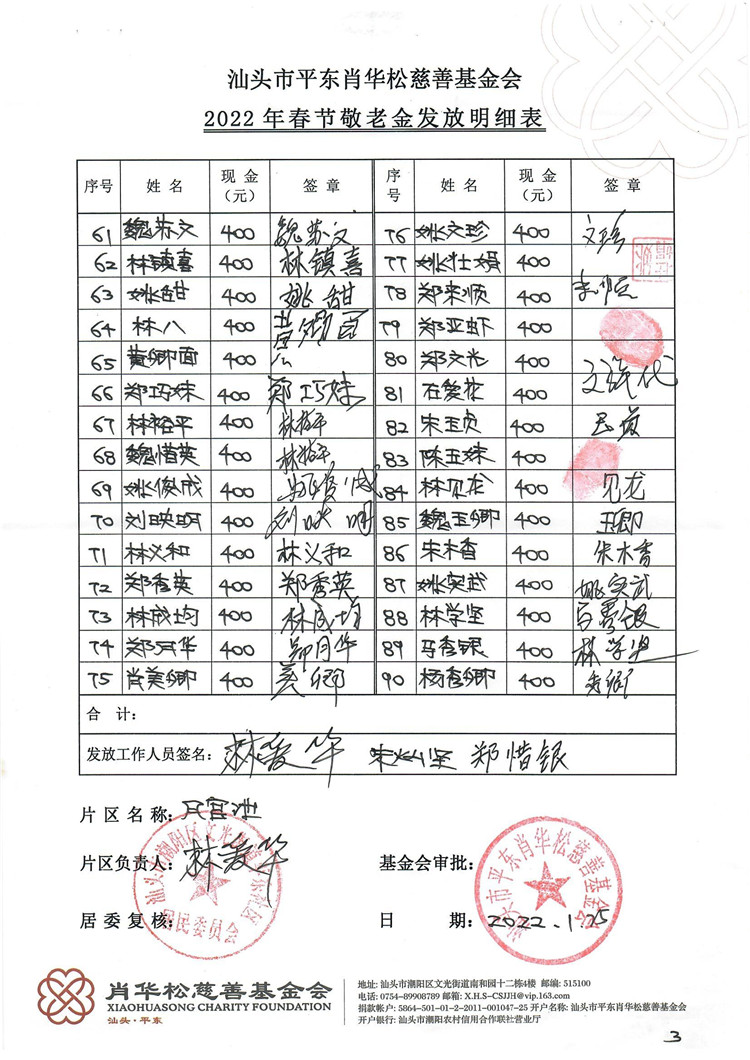 汕头市平东肖华松慈善基金会
2022年春节敬老金发放明细表
序号 姓名 现金(元) 签章 序号 姓名 现金(元) 签章
61 魏苏文 400 魏苏文 76 姚文珍 400 文珍
62 林镇喜 400 林镇喜 77 姚壮娟 400
63 姚甜 400 姚甜 78 郑来顺 400
64 林八 400 79 郑亚虾 400
65 黄卿面 400 80 郑文光 400
66 郑巧妹 400 郑巧妹 81 400
67 林裕平 400 林裕平 82 宋玉贞 400 玉贞
68 魏惜英 400 林裕平 83 陈玉妹 400
69 姚俊成 400 84 林见龙 400 见龙
70 刘映明 400 刘映明 85 魏玉卿 400 玉卿
71 林义和 400 林义和 86 宋木香 400 朱木香
72 郑秀英 400 郑秀英 87 姚实武 400 姚实武
73 林成均 400 林成均 88 林学坚 400 马秀银
74 郑月华 400 郑月华 89 马秀银 400 林学坚
75 肖美卿 400 美卿 90 杨秀卿 400 秀卿
合 计:
发放工作人员签名: 林爱华 郑惜银
片区名称:
片区负责人: 林爱华 基金会审批:
居委复核: 日 期: 2022.1.25
居民委员会
汕头市平东肖华松慈善基金会
肖华松慈善基金会
XIAOHUASONG CHARITY FOUNDATION
汕头·平东
地址: 汕头市潮阳区文光街道南和园十二栋4楼 邮编: 515100
电话: 0754-89908789 邮箱: X.H.S-CSJJH@vip.163.com
捐款帐户: 5864-501-01-2-2011-001047-25 开户名称: 汕头市平东肖华松慈善基金会
开户银行: 汕头市潮阳农村信用合作联社营业厅
3